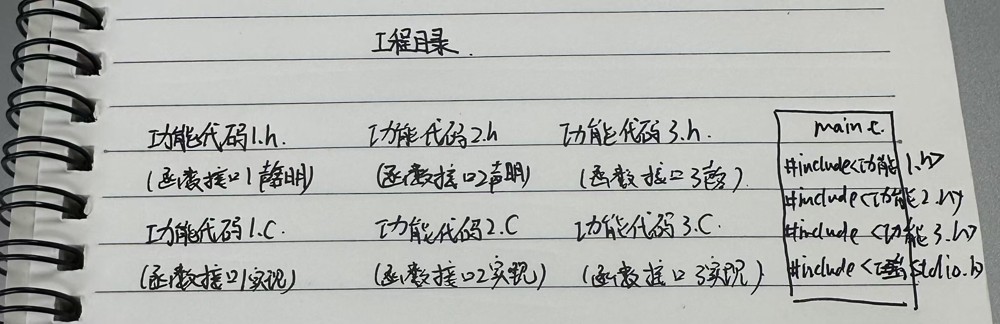 工程目录.
功能代码1.h. 功能代码2.h 功能代码3.h.
(函数接口1声明) (函数接口2声明) (函数接口3声明)
功能代码1.C. 功能代码2.C 功能代码3.C.
(函数接口1实现) (函数接口2实现) (函数接口3实现)
main c.
#include<功能1.h>
#include<功能2.h>
#include <功能3.h>
#include <stdio.h>